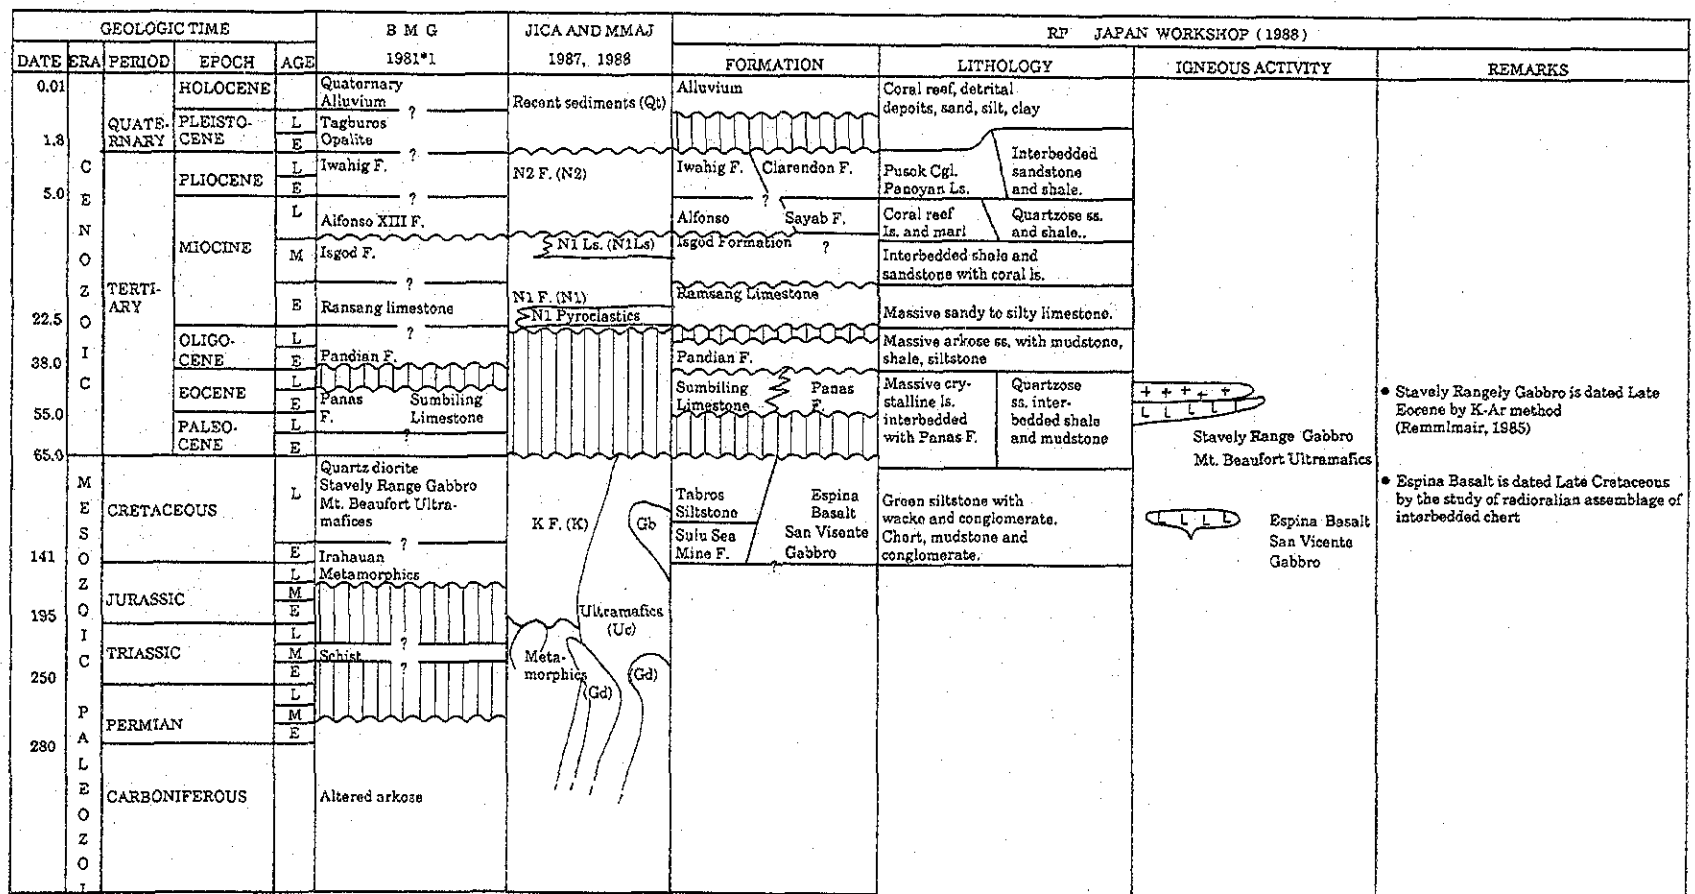 GEOLOGIC TIME
B M G
1981*1
JICA AND MMAJ
1987, 1988
RP JAPAN WORKSHOP (1988)
DATE
ERA
PERIOD
EPOCH
AGE
FORMATION
LITHOLOGY
IGNEOUS ACTIVITY
REMARKS
0.01
1.8
5.0
22.5
38.0
55.0
65.0
141
195
250
280
C E N O Z O I C
M E S O Z O I C
P A L E O Z O I
QUATE-
RNARY
TERTI-
ARY
CRETACEOUS
JURASSIC
TRIASSIC
PERMIAN
CARBONIFEROUS
HOLOCENE
PLEISTO-
CENE
PLIOCENE
MIOCINE
OLIGO-
CENE
EOCENE
PALEO-
CENE
L
E
L
E
L
M
E
L
E
L
E
L
E
L
E
L
M
E
L
M
E
L
M
E
Quaternary
Alluvium
?
Tagburos
Opalite
?
Iwahig F.
?
Alfonso XIII F.
Isgod F.
?
Ransang limestone
?
Pandian F.
Panas Sumbiling
F. Limestone
?
Quartz diorite
Stavely Range Gabbro
Mt. Beaufort Ultra-
mafices
?
Irahauan
Metamorphics
?
Schist
?
Altered arkose
Recent sediments (Qt)
N2 F. (N2)
N1 Ls. (N1Ls)
N1 F. (N1)
N1 Pyroclastics
K F. (K)
Gb
Ultramafics
(Uc)
Meta-
morphics
(Gd)
(Gd)
Alluvium
Iwahig F. Clarendon F.
?
Alfonso Sayab F.
Isgod Formation ?
Ramsang Limestone
Pandian F.
Sumbiling Panas
Limestone F.
Tabros
Siltstone
Sulu Sea
Mine F.
Espina
Basalt
San Visente
Gabbro
?
Coral reef, detrital
depoits, sand, silt, clay
Pusok Cgl.
Panoyan Ls.
Interbedded
sandstone
and shale.
Coral reef
ls. and marl
Quartzose ss.
and shale..
Interbedded shale and
sandstone with coral ls.
Massive sandy to silty limestone.
Massive arkose ss, with mudstone,
shale, siltstone
Massive cry-
stalline ls.
interbedded
with Panas F.
Quartzose
ss. inter-
bedded shale
and mudstone
Green siltstone with
wacke and conglomerate.
Chert, mudstone and
conglomerate.
+ + + + +
L L L L L
Stavely Range Gabbro
Mt. Beaufort Ultramafics
L L L L
Espina Basalt
San Vicente
Gabbro
• Stavely Rangely Gabbro is dated Late
Eocene by K-Ar method
(Remmlmair, 1985)
• Espina Basalt is dated Late Cretaceous
by the study of radioralian assemblage of
interbedded chert